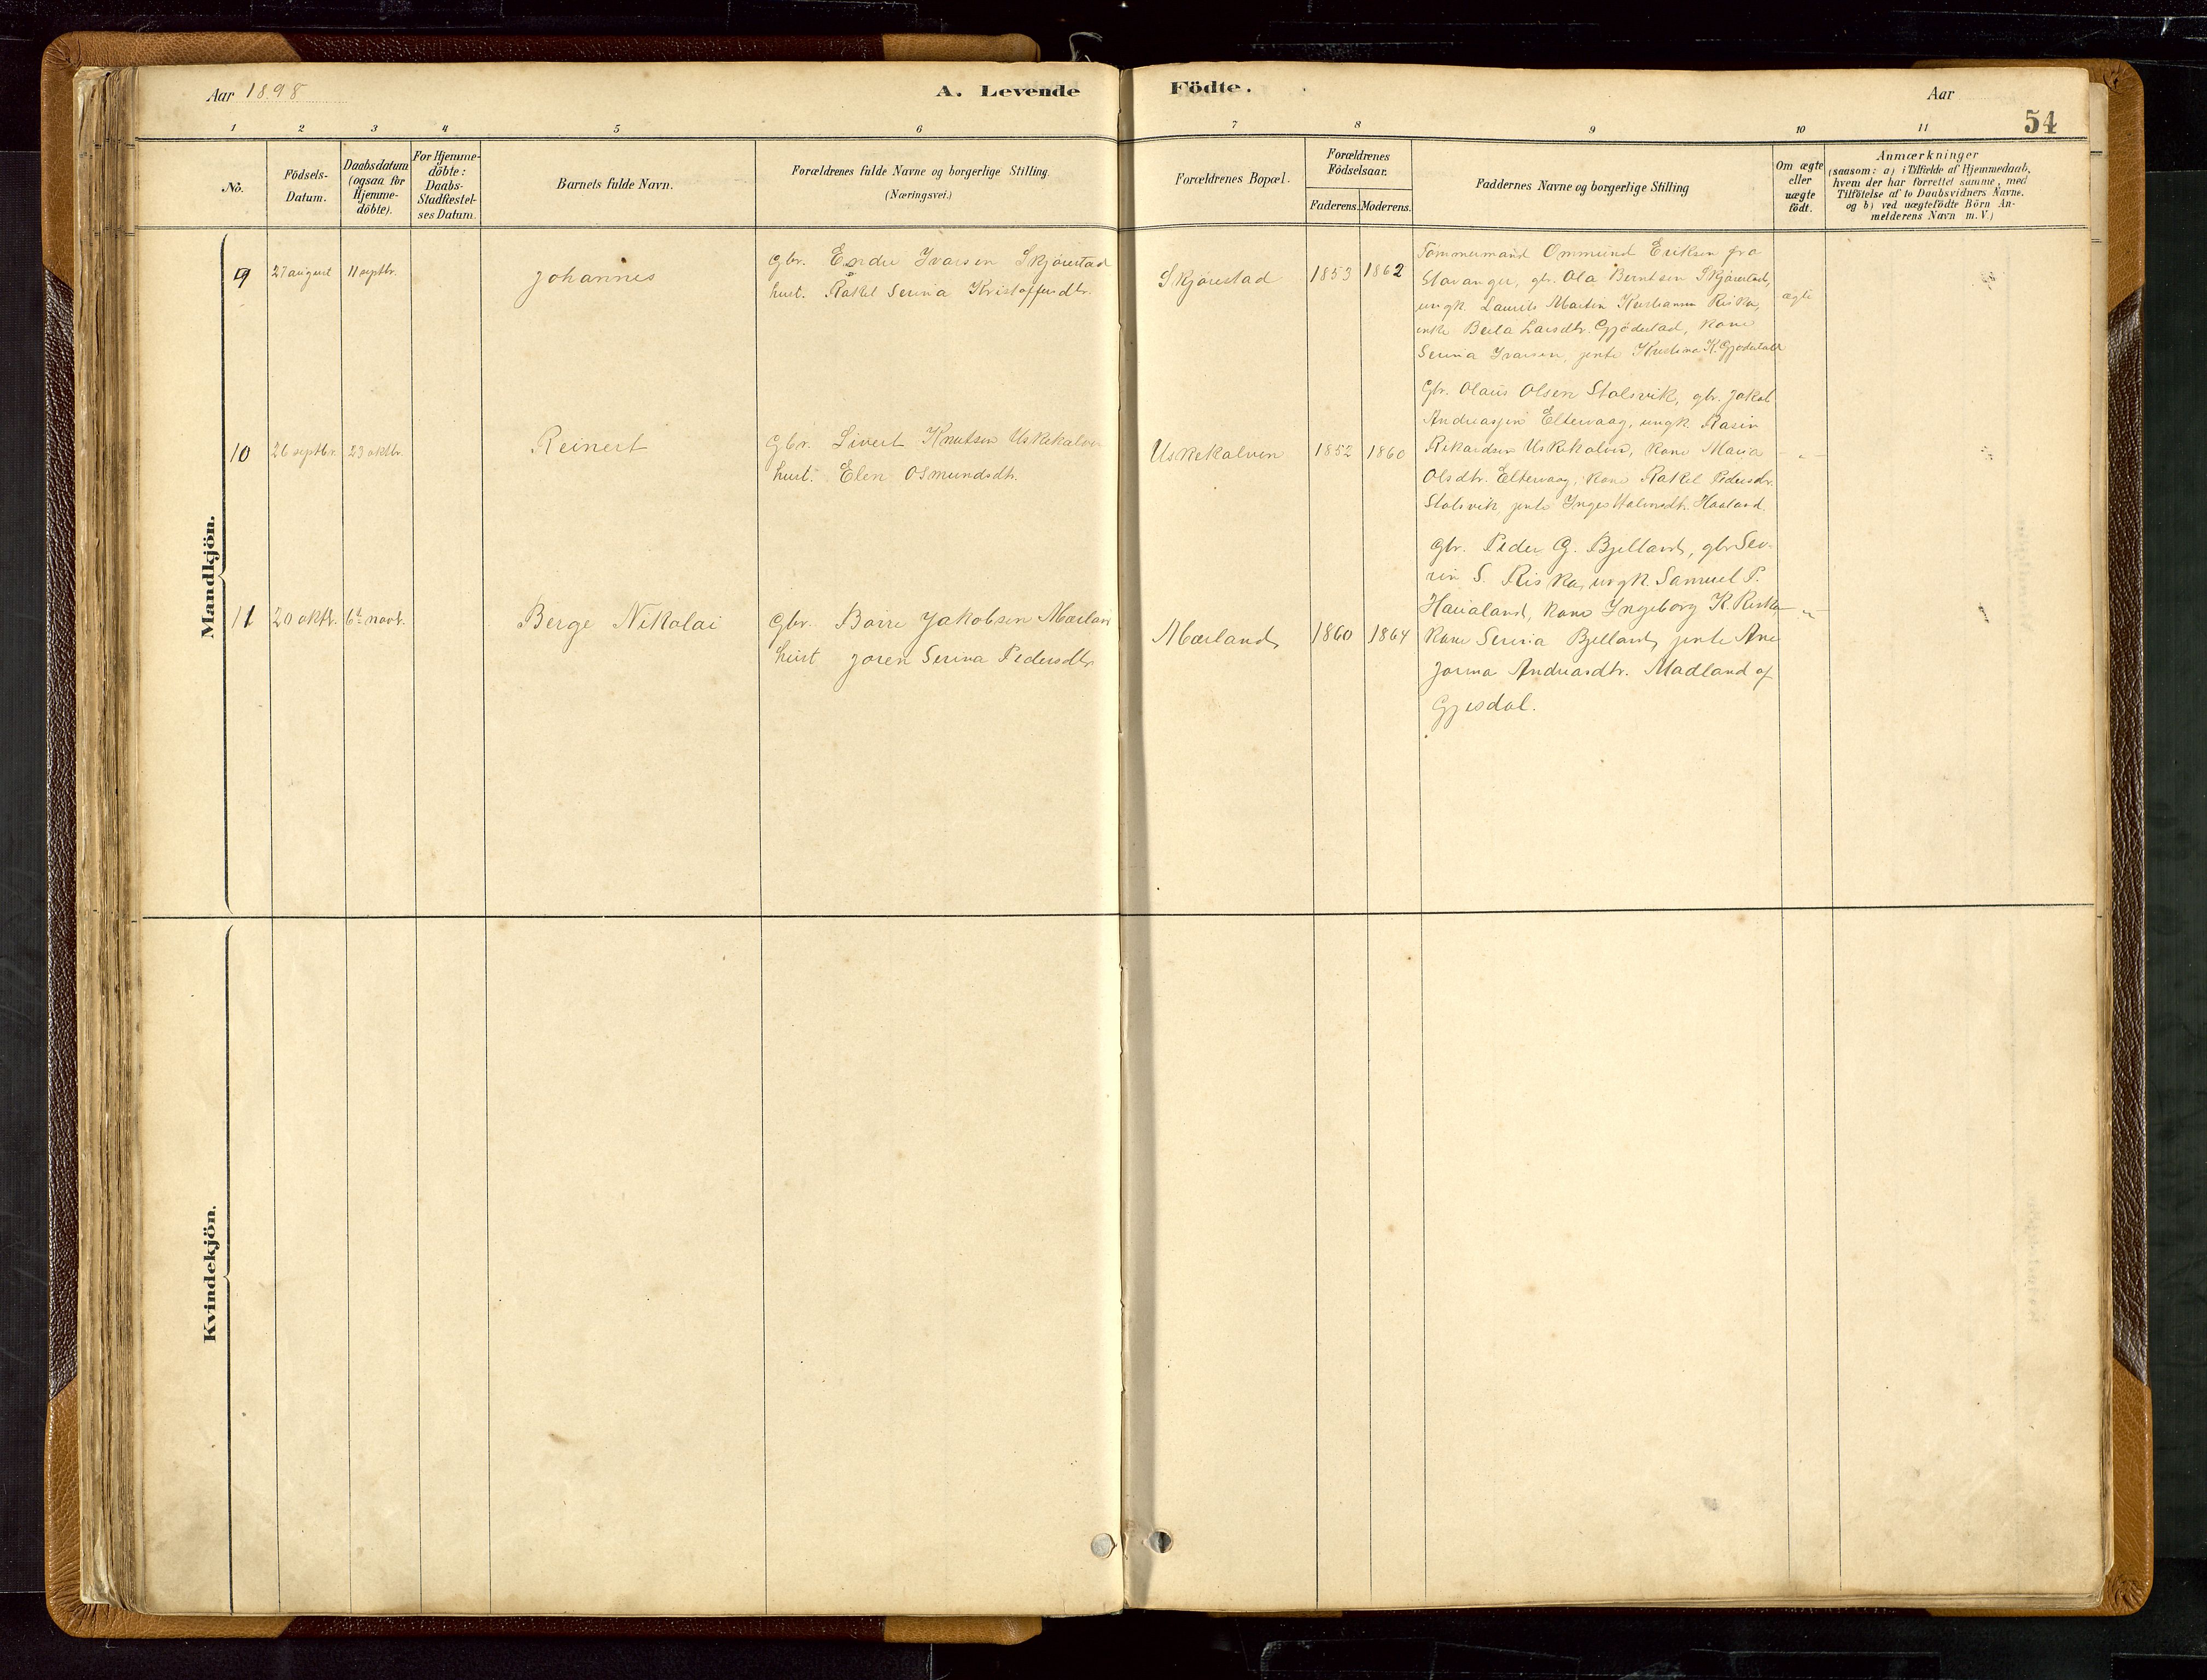 Aar 1898
A. Levende Födte.
Aar
54
1 2 3 4 5 6 7 8 9 10 11
No.
Födsels-
Datum.
Daabsdatum
(ogsaa for
Hjemme-
döbte).
For Hjemme-
döbte:
Daabs-
Stadfæstel-
ses Datum.
Barnets fulde Navn.
Forældrenes fulde Navne og borgerlige Stilling.
(Næringsvei.)
Forældrenes Bopæl.
Forældrenes
Födselsaar.
Faderens. Moderens.
Faddernes Navne og borgerlige Stilling
Om ægte
eller
uægte
födt.
Anmærkninger
(saasom: a) i Tilfælde af Hjemmedaab,
hvem der har forrettet samme, med
Tilföielse af to Daabsvidners Navne.
og b) ved uægtefödte Börn An-
melderens Navn m. V.)
Mandkjön.
9
27 august
11 septbr.
Johannes
gbr. Endre Ivarsen Skjörestad
hust. Rakel Serina Kristoffersdtr.
Skjörestad
1853
1862
Tömmermand Ommund Eriksen fra
Stavanger, gbr. Ola Berntsen Skjörestad,
ungk. Laurits Martin Riska,
enke Berta Larsdtr. Gjödestad, kone
Serina Ivarsen, jente Kristine K. Gjödestad
ægte
10
26 septbr.
23 oktbr.
Reinert
gbr. Sivert Knutsen Uskekalven
hust. Elen Osmundsdtr.
Uskekalven
1852
1860
Gbr. Olaus Olsen Stolsvik, gbr. Jakob
Andreassen Eltervaag, ungk. Rasin
Rikardsen Uskekalven, kone Maria
Olsdtr. Eltervaag, kone Rakel Pedersdtr.
Stolsvik, jente Haaland.
- „ -
11
20 oktbr.
6te novbr.
Berge Nikolai
gbr. Boirre Jakobsen Mæland
hust Joren Serina Pedersdtr.
Mæland
1860
1864
gbr. Peder G. Bjelland, gbr. Sev-
rin S. Riska, ungk. Samuel P.
Haualand, kone Ingeborg K. Riska
kone Serina Bjelland, jente Ane
Jorina Andreasdtr. Madland af
Gjesdal.
- „ -
Kvindekjön.